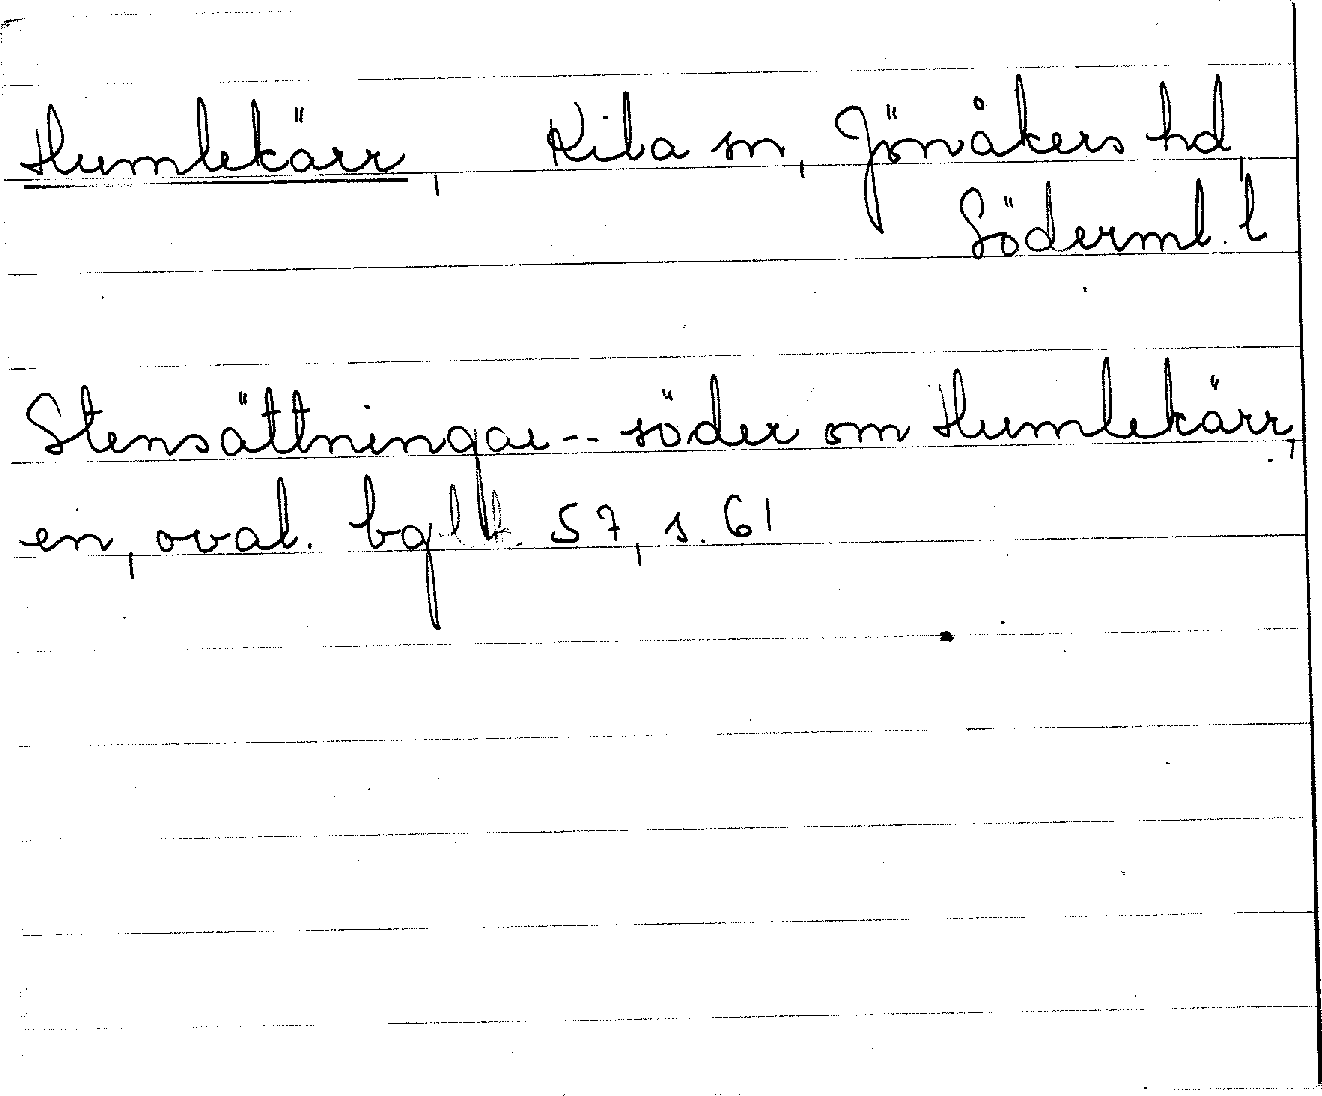 Humlekärr, Kila sn, Jönåkers hd,
Söderml. l
Stensättningar -- söder om Humlekärr,
en, oval. bgl 57, s. 61